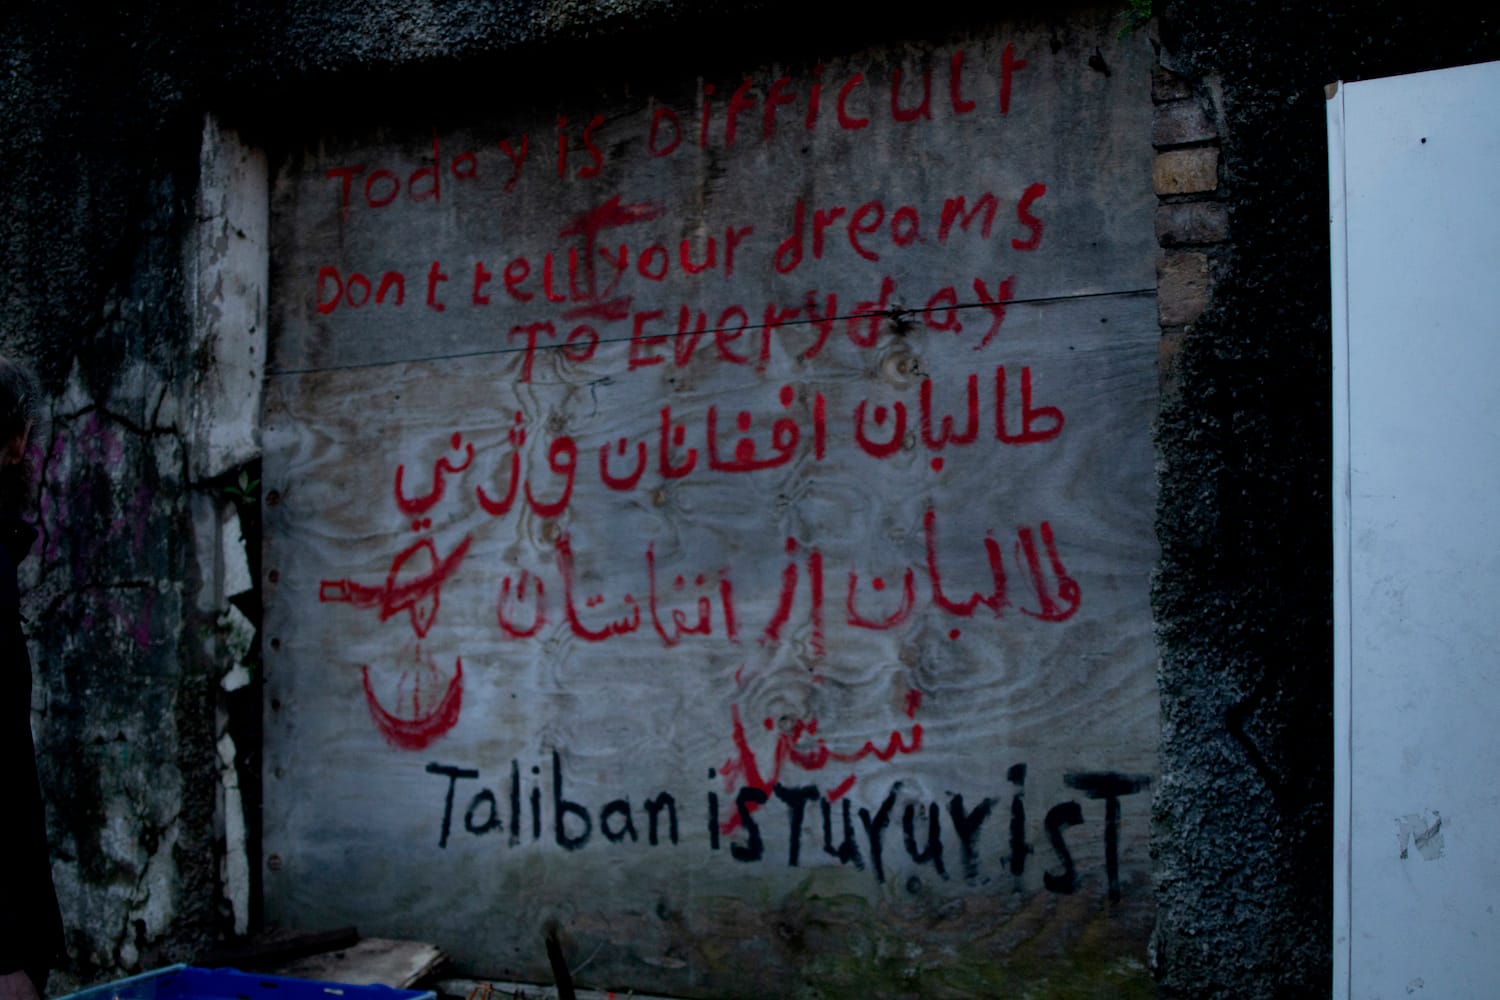 Today is Difficult
Dont tell your dreams
To Everyday
طالبان افغانان وژني
طالبان از افغانستان
نیستند
Taliban is Tururist